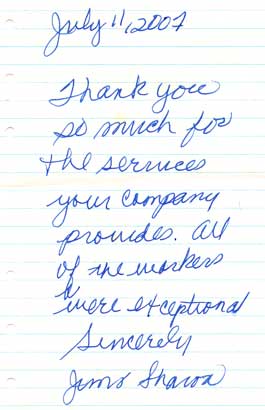 July 11, 2007
Thank you
so much for
the services
your company
provides. All
of the workers
were exceptional
Sincerely
Jim & Sharon